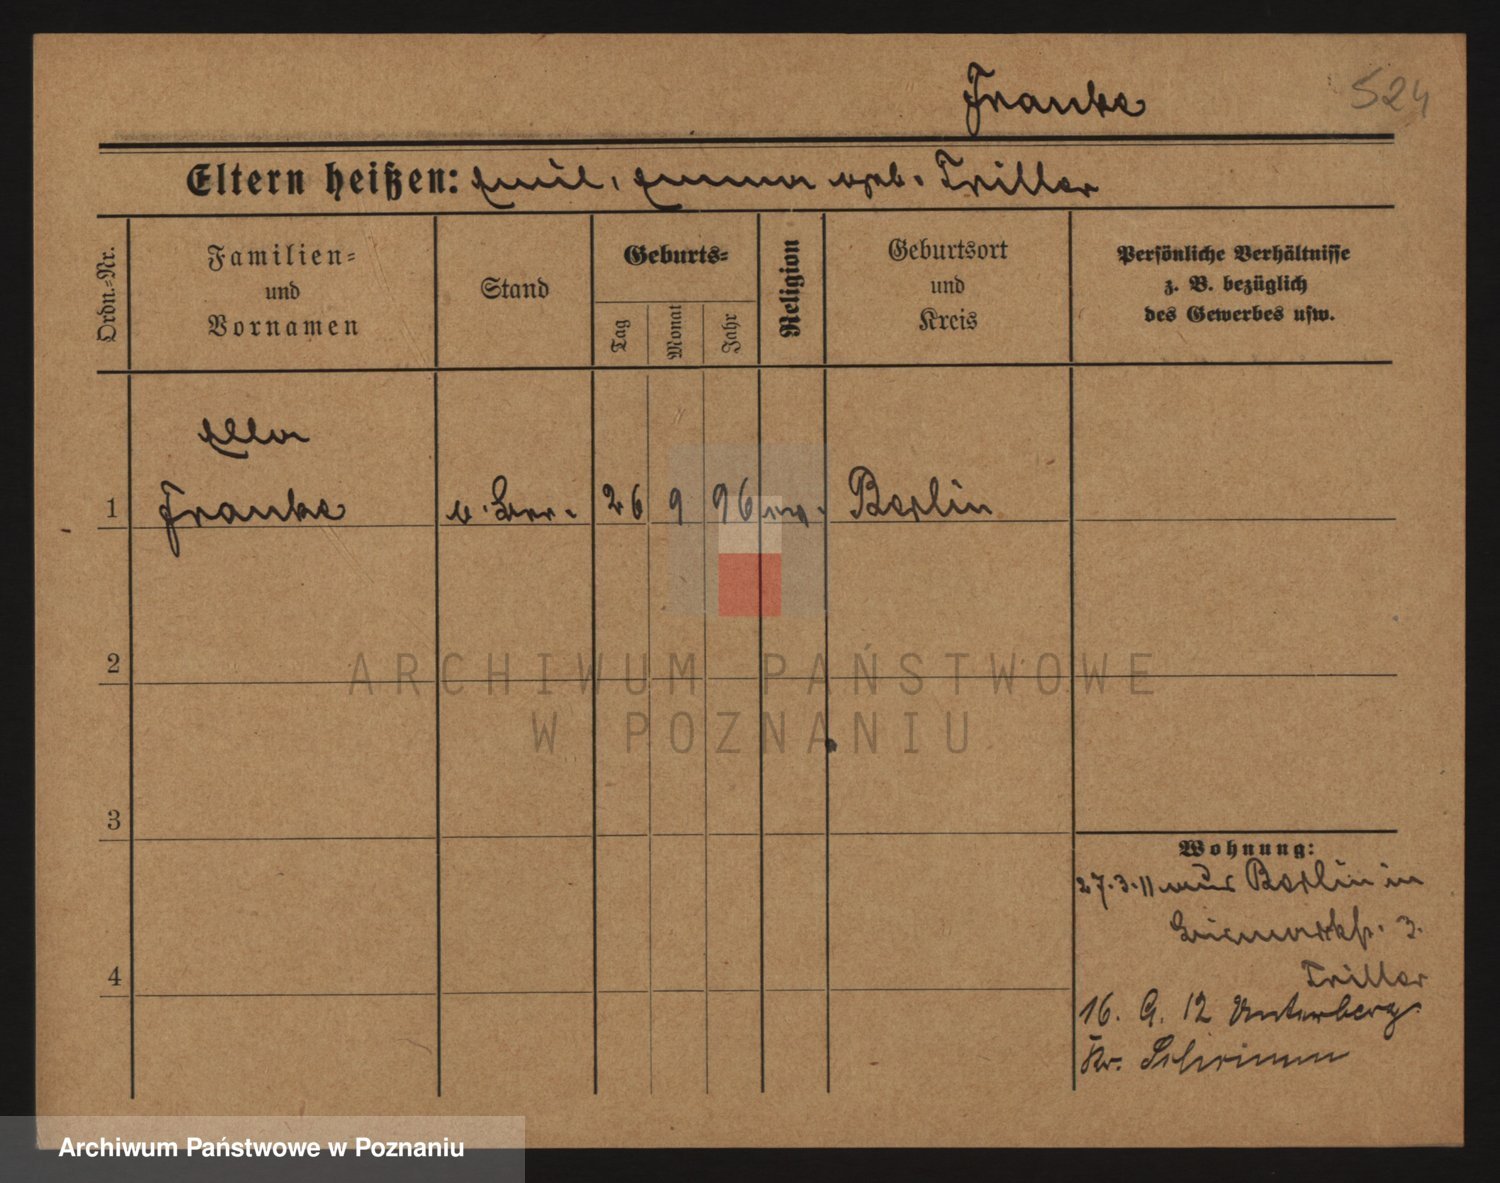 Franke
524
Eltern heißen: Emil, Emma geb. Triller
Ordn.-Nr.
Familien-
und
Vornamen
Stand
Geburts-
Tag
Monat
Jahr
Religion
Geburtsort
und
Kreis
Persönliche Verhältnisse
z. B. bezüglich
des Gewerbes usw.
Ella
1 Franke 26 9 96 Berlin
2
3
4
Wohnung:
27.3.11 aus Berlin in
Bismarckstr. 3.
Triller
16. 12 Unterberg
Kr. Schrimm
ARCHIWUM PAŃSTWOWE
W POZNANIU
Archiwum Państwowe w Poznaniu